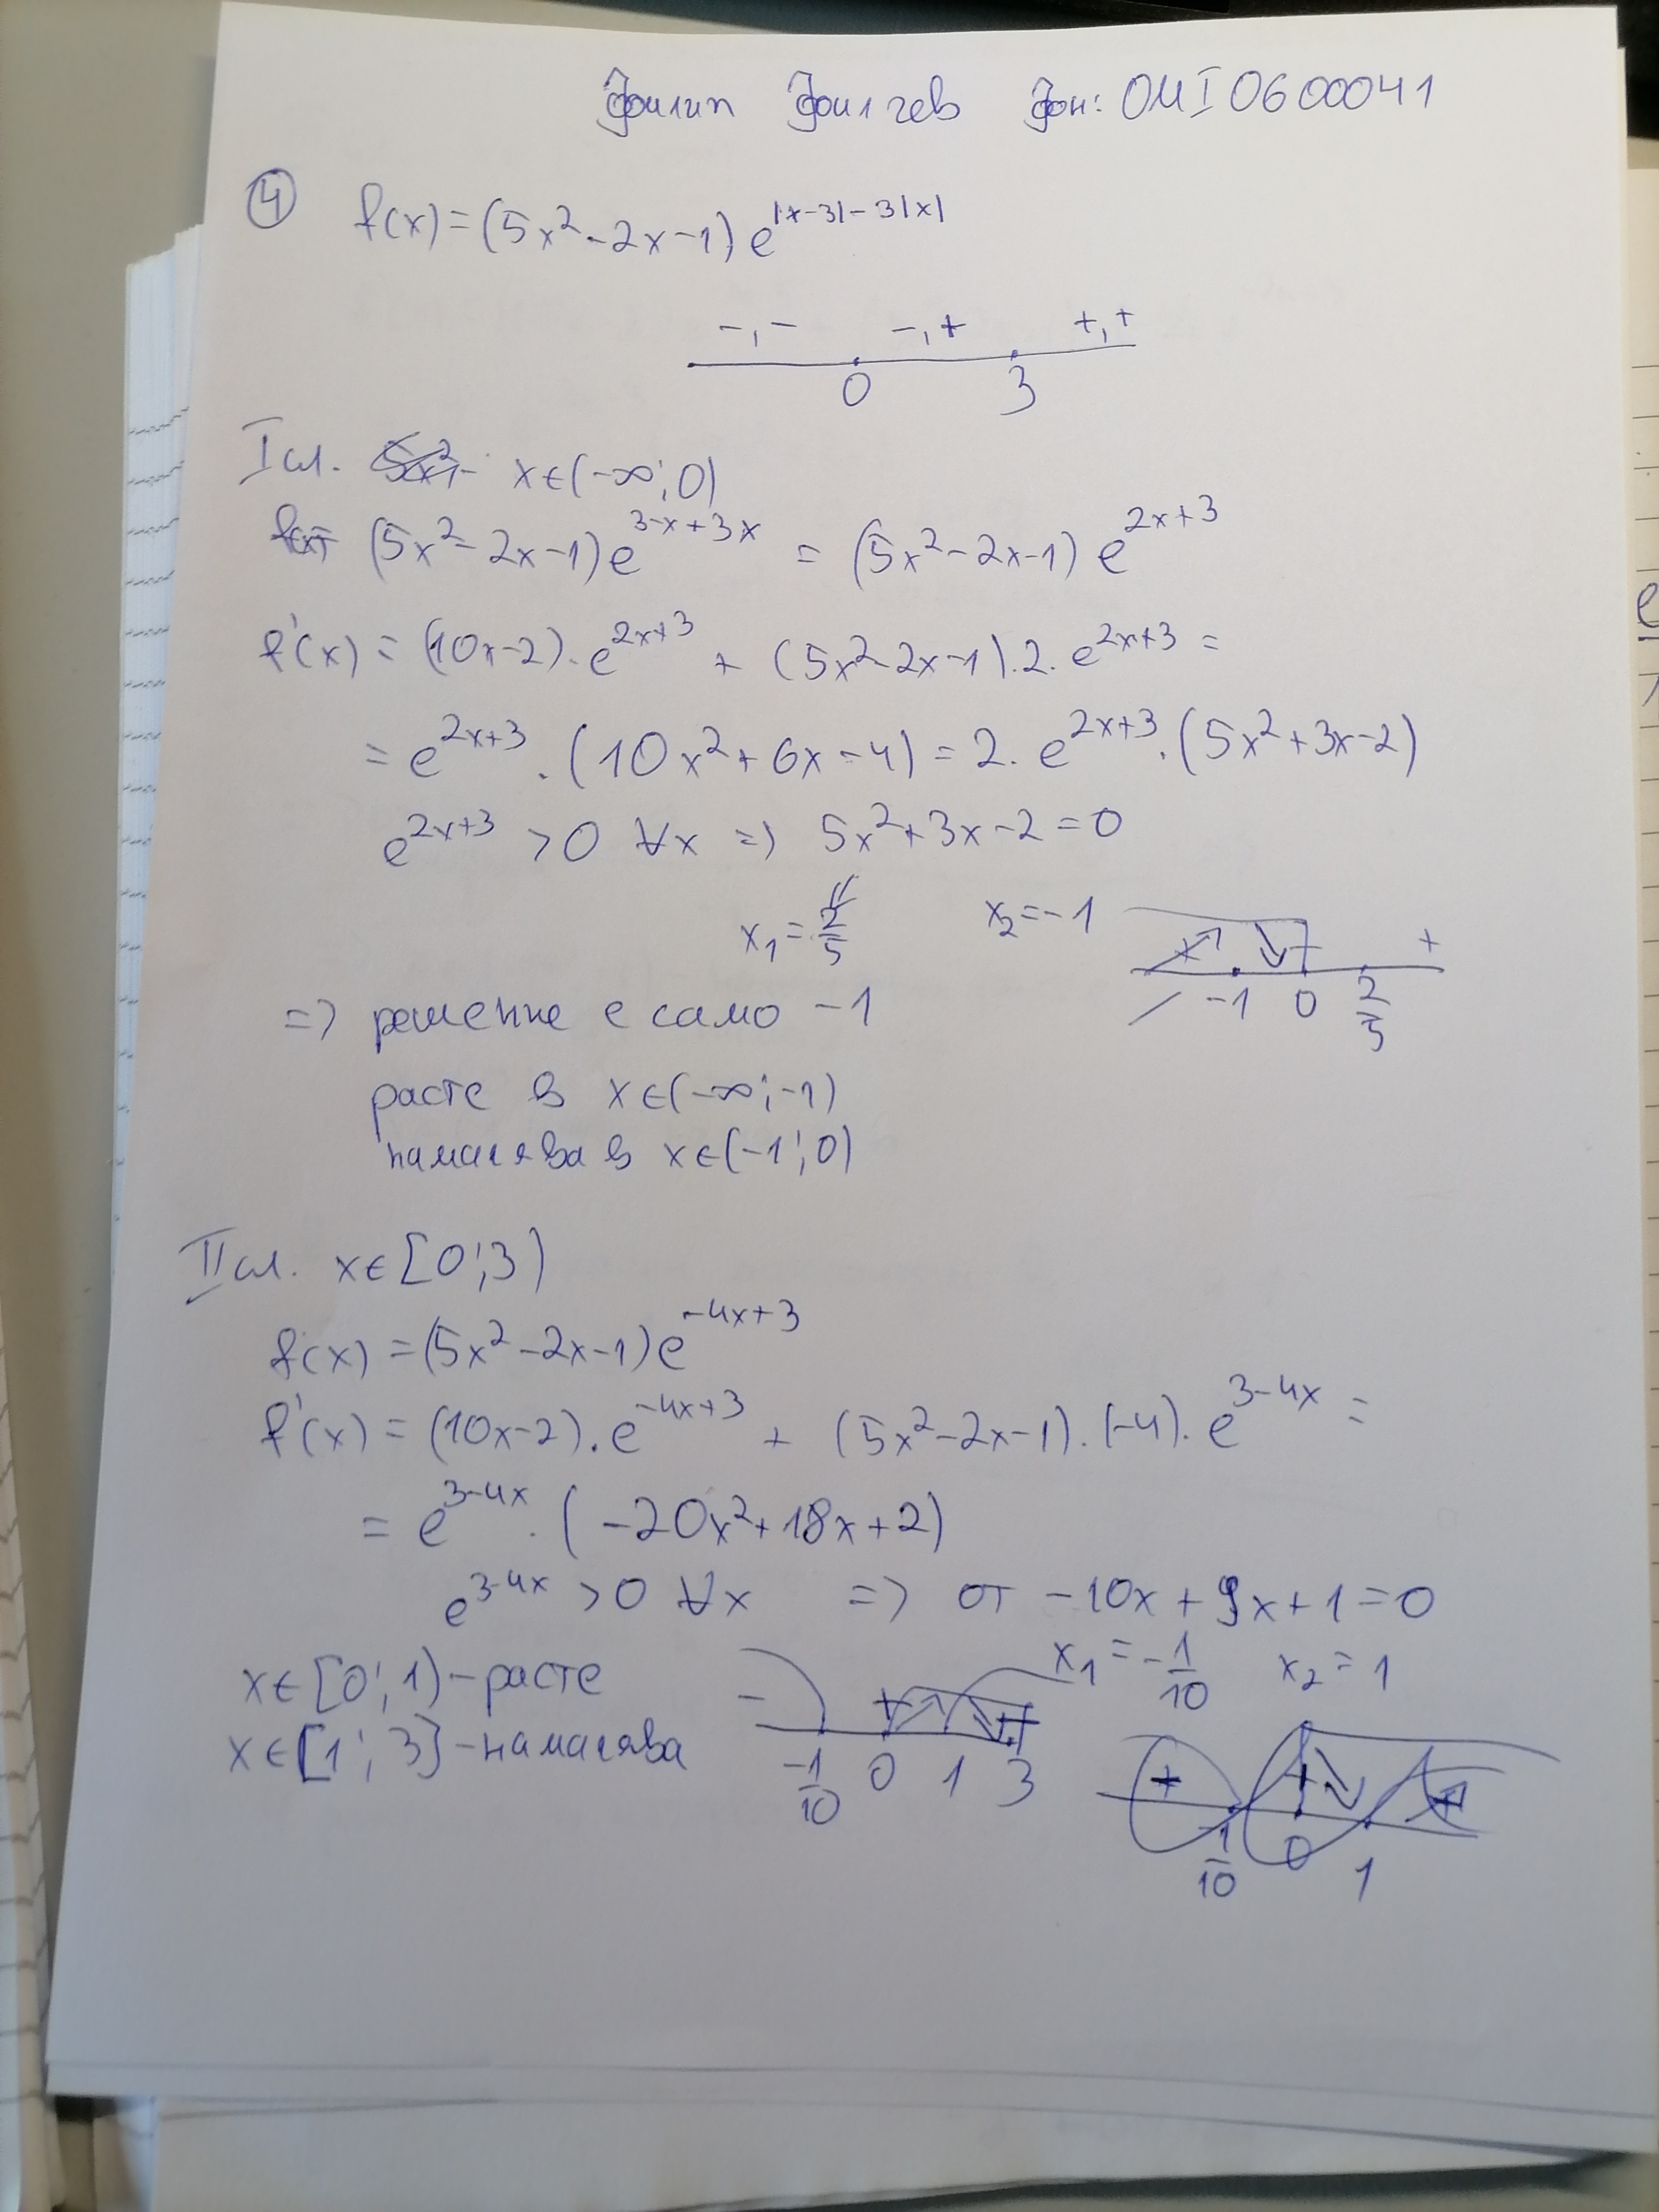 Филип Филчев фн: 0MI0600041
④ f(x) = (5x² - 2x - 1) e^{|x-3| - 3|x|}
-, - -, + +, +
0 3
I сл. x ∈ (-∞; 0)
(5x² - 2x - 1) e^{3-x+3x} = (5x² - 2x - 1) e^{2x+3}
f'(x) = (10x-2) . e^{2x+3} + (5x² - 2x - 1) . 2 . e^{2x+3} =
= e^{2x+3} . (10x² + 6x - 4) = 2 . e^{2x+3} . (5x² + 3x - 2)
e^{2x+3} > 0 ∀x => 5x² + 3x - 2 = 0
x₁ = 2/5 x₂ = -1
+ - +
-1 0 2/5
=> решение е само -1
расте в x ∈ (-∞; -1)
намалява в x ∈ (-1; 0)
II сл. x ∈ [0; 3)
f(x) = (5x² - 2x - 1) e^{-4x+3}
f'(x) = (10x-2) . e^{-4x+3} + (5x² - 2x - 1) . (-4) . e^{3-4x} =
= e^{3-4x} . (-20x² + 18x + 2)
e^{3-4x} > 0 ∀x => от -10x + 9x + 1 = 0
x₁ = -1/10 x₂ = 1
x ∈ [0; 1) - расте
x ∈ [1; 3] - намалява
- + -
-1/10 0 1 3
+ + +
-1/10 0 1